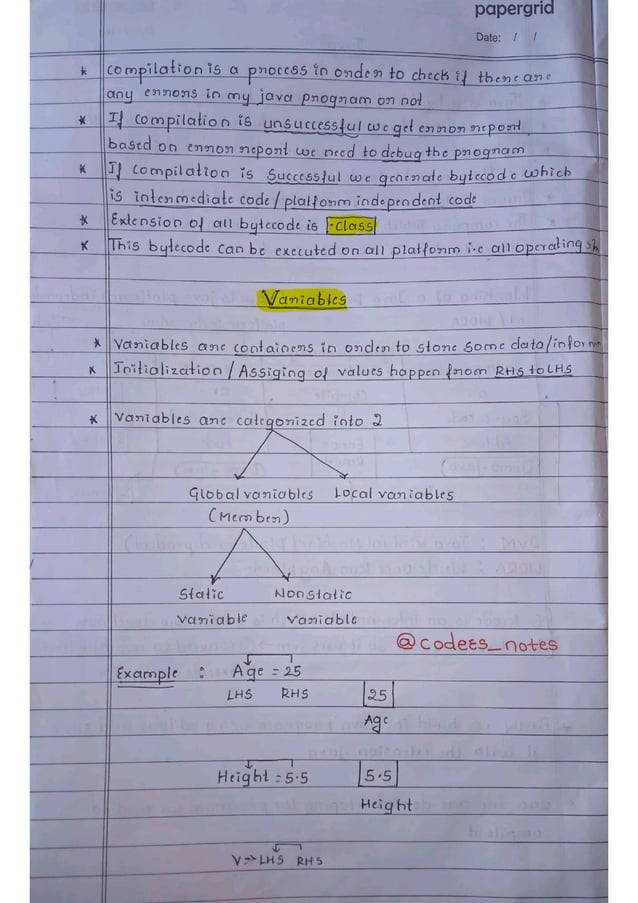 papergrid
Date: / /
* Compilation is a process in order to check if there are
any errors in my java program or not
* If compilation is unsuccessful we get error report
based on error report we need to debug the program
* If compilation is Successful we generate bytecode which
is intermediate code / platform independent code
* Extension of all bytecode is .class
* This bytecode can be executed on all platform i.e all operating
Variables
* Variables are containers in order to store some data/inform
* Initialization / Assiging of values happen from RHS to LHS
* Variables are categorized into 2
Global variables Local variables
(Member)
Static Nonstatic
variable variable
@codees_notes
Example : Age = 25
LHS RHS 25
Age
Height = 5.5 5.5
Height
V => LHS RHS